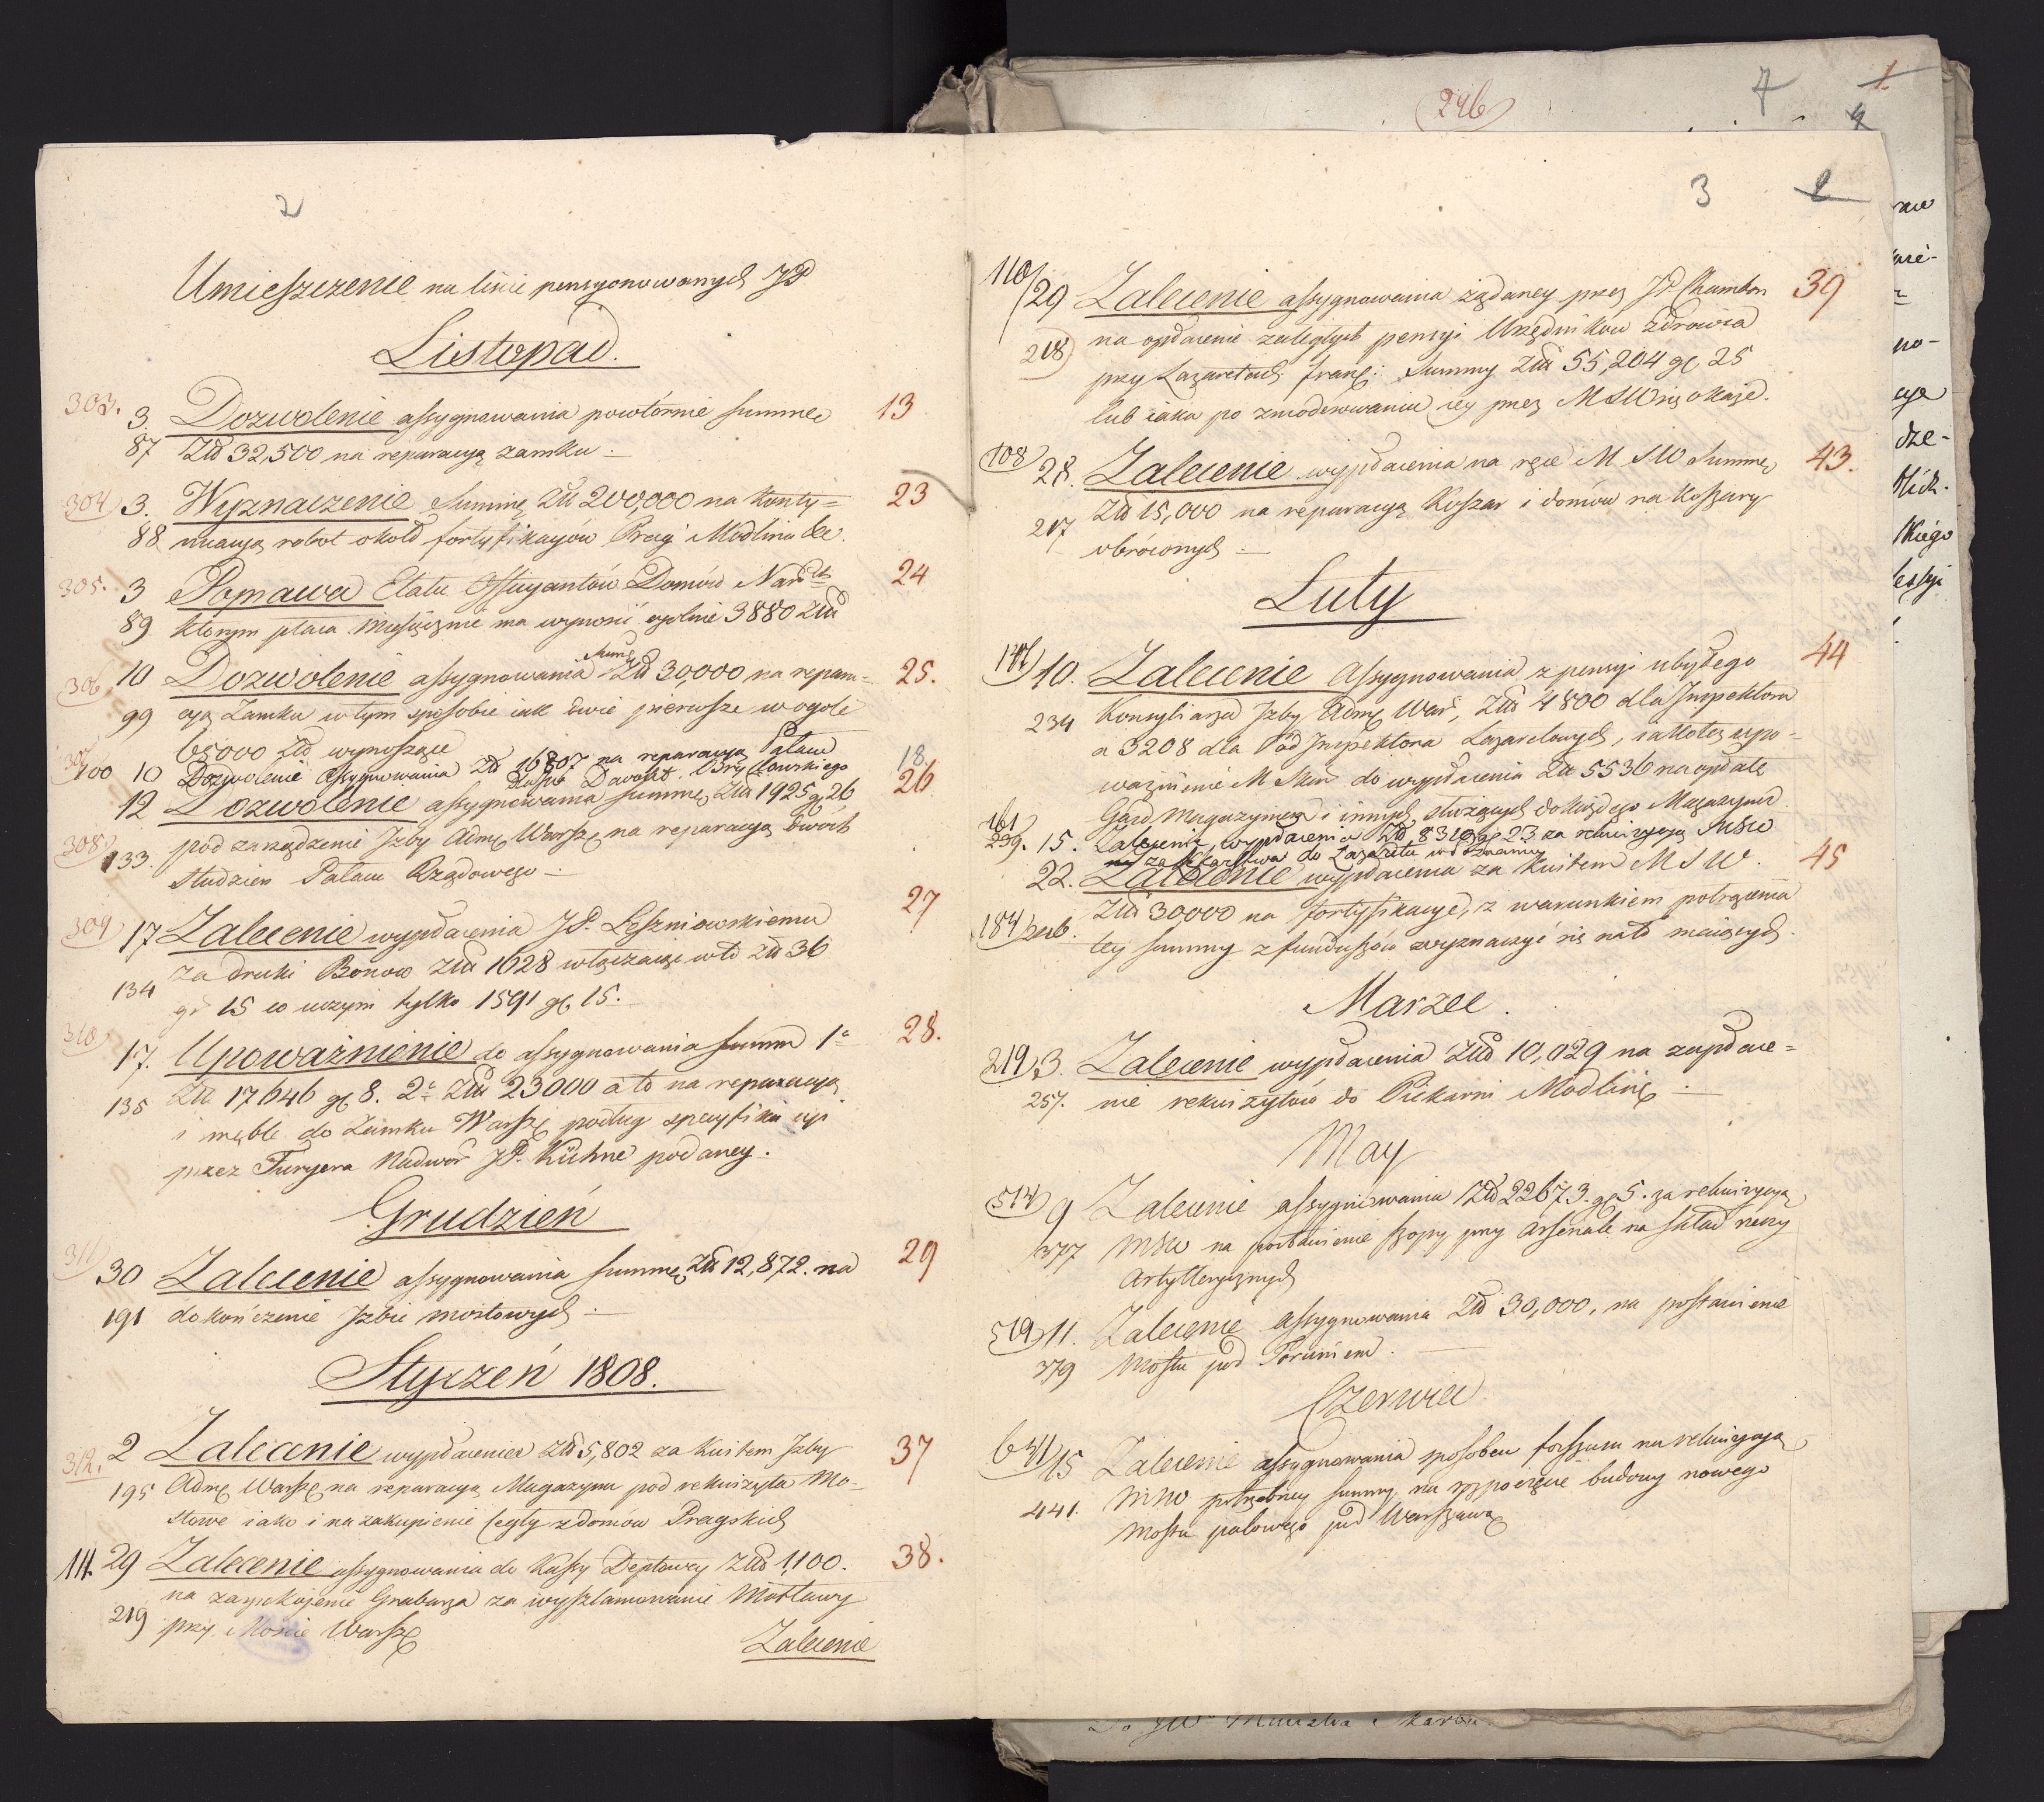 2
Umieszczenie na liście pensyonowanych JP
Listopad.
303. 3. Dozwolenie assygnowania powtórnie summę 13
87 Złł 32,500 na reparacyą zamku.
304 3. Wyznaczenie Summę Złł 200,000 na konty= 23
88 nuacyą robot około fortyfikacyów Pragi Modlina &c.
305. 3 Poprawa Etatu Officyantów Domów Nar 24
89 którym płaca miesięcznie ma wynosić ogólnie 3880 Złł
306 10 Dozwolenie assygnowania Summę Złł 30,000 na repara= 25.
99 cyą Zamku w tym sposobie iak dwie pierwsze w ogóle
65000 Złł wynoszące
307 100 10 Dozwolenie Assygnowania Zł 16807 na reparacyą Pałacu 18.
Brylowskiego
12 Dozwolenie assygnowania summę Złł 1925 gr 26 26
308 133. pod zarządzenie Izby Adm. Warsz. na reparacyą dwóch
Studzien Pałacu Rządowego
309 17 Zalecenie wypłacenia JP. Leszniowskiemu 27
za druki Bonow Złł 1628 włączaiąc w to Złł 36
134 gr 15 co uczyni tylko 1591 gr 15.
310 17. Upoważnienie do assygnowania summ 1° 28.
135 Złł 17646 gr 8. 2° Złł 23000 a to na reparacyą
i meble do Zamku Warsz. podług specyfikacyi
przez Furyera Nadwor JP. Kühne podaney.
Grudzień
311 30 Zalecenie assygnowania summę Złł 12,872. na 29
191 dokończenie Izbic mostowych
Styczeń 1808.
312. 2 Zalecenie wypłacenia Złł 5,802 za kwitem Izby 37
195 Adm. Warsz. na reparacyą Magazynu pod rekwizyta Mo-
stowe iako i na zakupienie Cegły z domów Pragskich
111. 29 Zalecenie assygnowania do Kassy Deptowey Złł 1,100. 38.
na zaspokojenie Grabarza za wyszlamowanie Mostawy
219 przy Moście Warsz.
Zalecenie
246
7 1.
3 2
110/29 Zalecenie assygnowania żądaney przez JP. Chambon 39
218 na opłacenie zaległych pensyi Urzędników Zdrowia
przy Lazaretach franc: Summy Złł 55,204 gr 25
lub iaka po zmoderowaniu iey przez MSW się okaże.
108 28. Zalecenie wypłacenia na ręce M S W Summę 43.
217 Złł 15,000 na reparacyą Koszar i domów na Koszary
obróconych
Luty
10. Zalecenie Assygnowania z pensyi ubyłego 44
234 Konsyliarza Izby Adm. War, Złł 4800 dla Inspektora
a 3208 dla Pod Inspektora Lazaretowych, iakoteż upo-
ważnienie M Skar do wypłacenia Złł 5536 na opłatę
Gard Magazynierów i innych służących do każdego Magazynu
161 239. 15. Zalecenie, wypłacenia Złł 8319 gr 23 za rekwizycyą MSW
za lekarstwa do Lazaretu
22. Zalecenie wypłacenia za kwitem M S W. 45
184 Złł 30000 na fortyfikacye, z warunkiem potrącenia
tey summy z funduszów wyznaczyć się na to maiących.
Marzec.
219 3. Zalecenie wypłacenia Złł 10,029 na zapłace=
257. nie rekwizytów do Piekarni Modlinie
May
514 9 Zalecenie assygnowania Złł 22673. gr 5. za rekwizycyą
377 MSW na postawienie Szopy przy Arsenale na skład rzeczy
Artylleryicznych
519 11. Zalecenie assygnowania Złł 30,000, na postawienie
379 Mostu pod Toruniem.
Czerwiec
641 15 Zalecenie assygnowania sposobem forszusu na rekwizycyą
441. MSW potrzebney summy na rozpoczęcie budowy nowego
Mostu palowego pod Warszawą